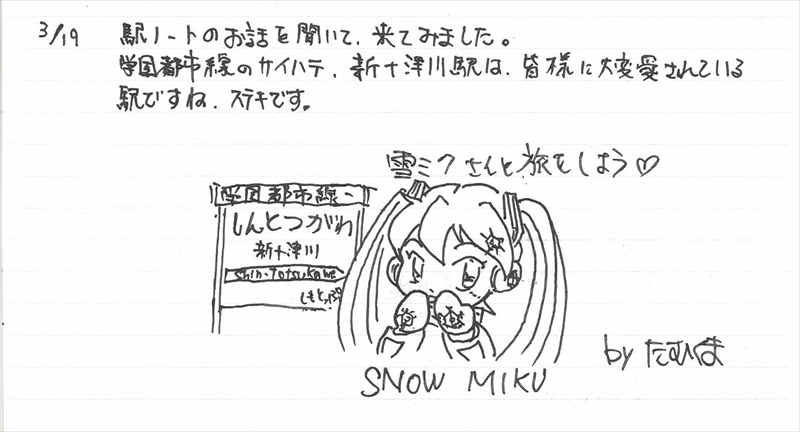 3/19 駅ノートのお話を聞いて、来てみました。
学園都市線のサイハテ、新十津川駅は、皆様に大変愛されている
駅ですね。ステキです。
雪ミクさんと旅をしよう♡
学園都市線
しんとつがわ
新十津川
Shin-Totsukawa
SNOW MIKU
by たむくま